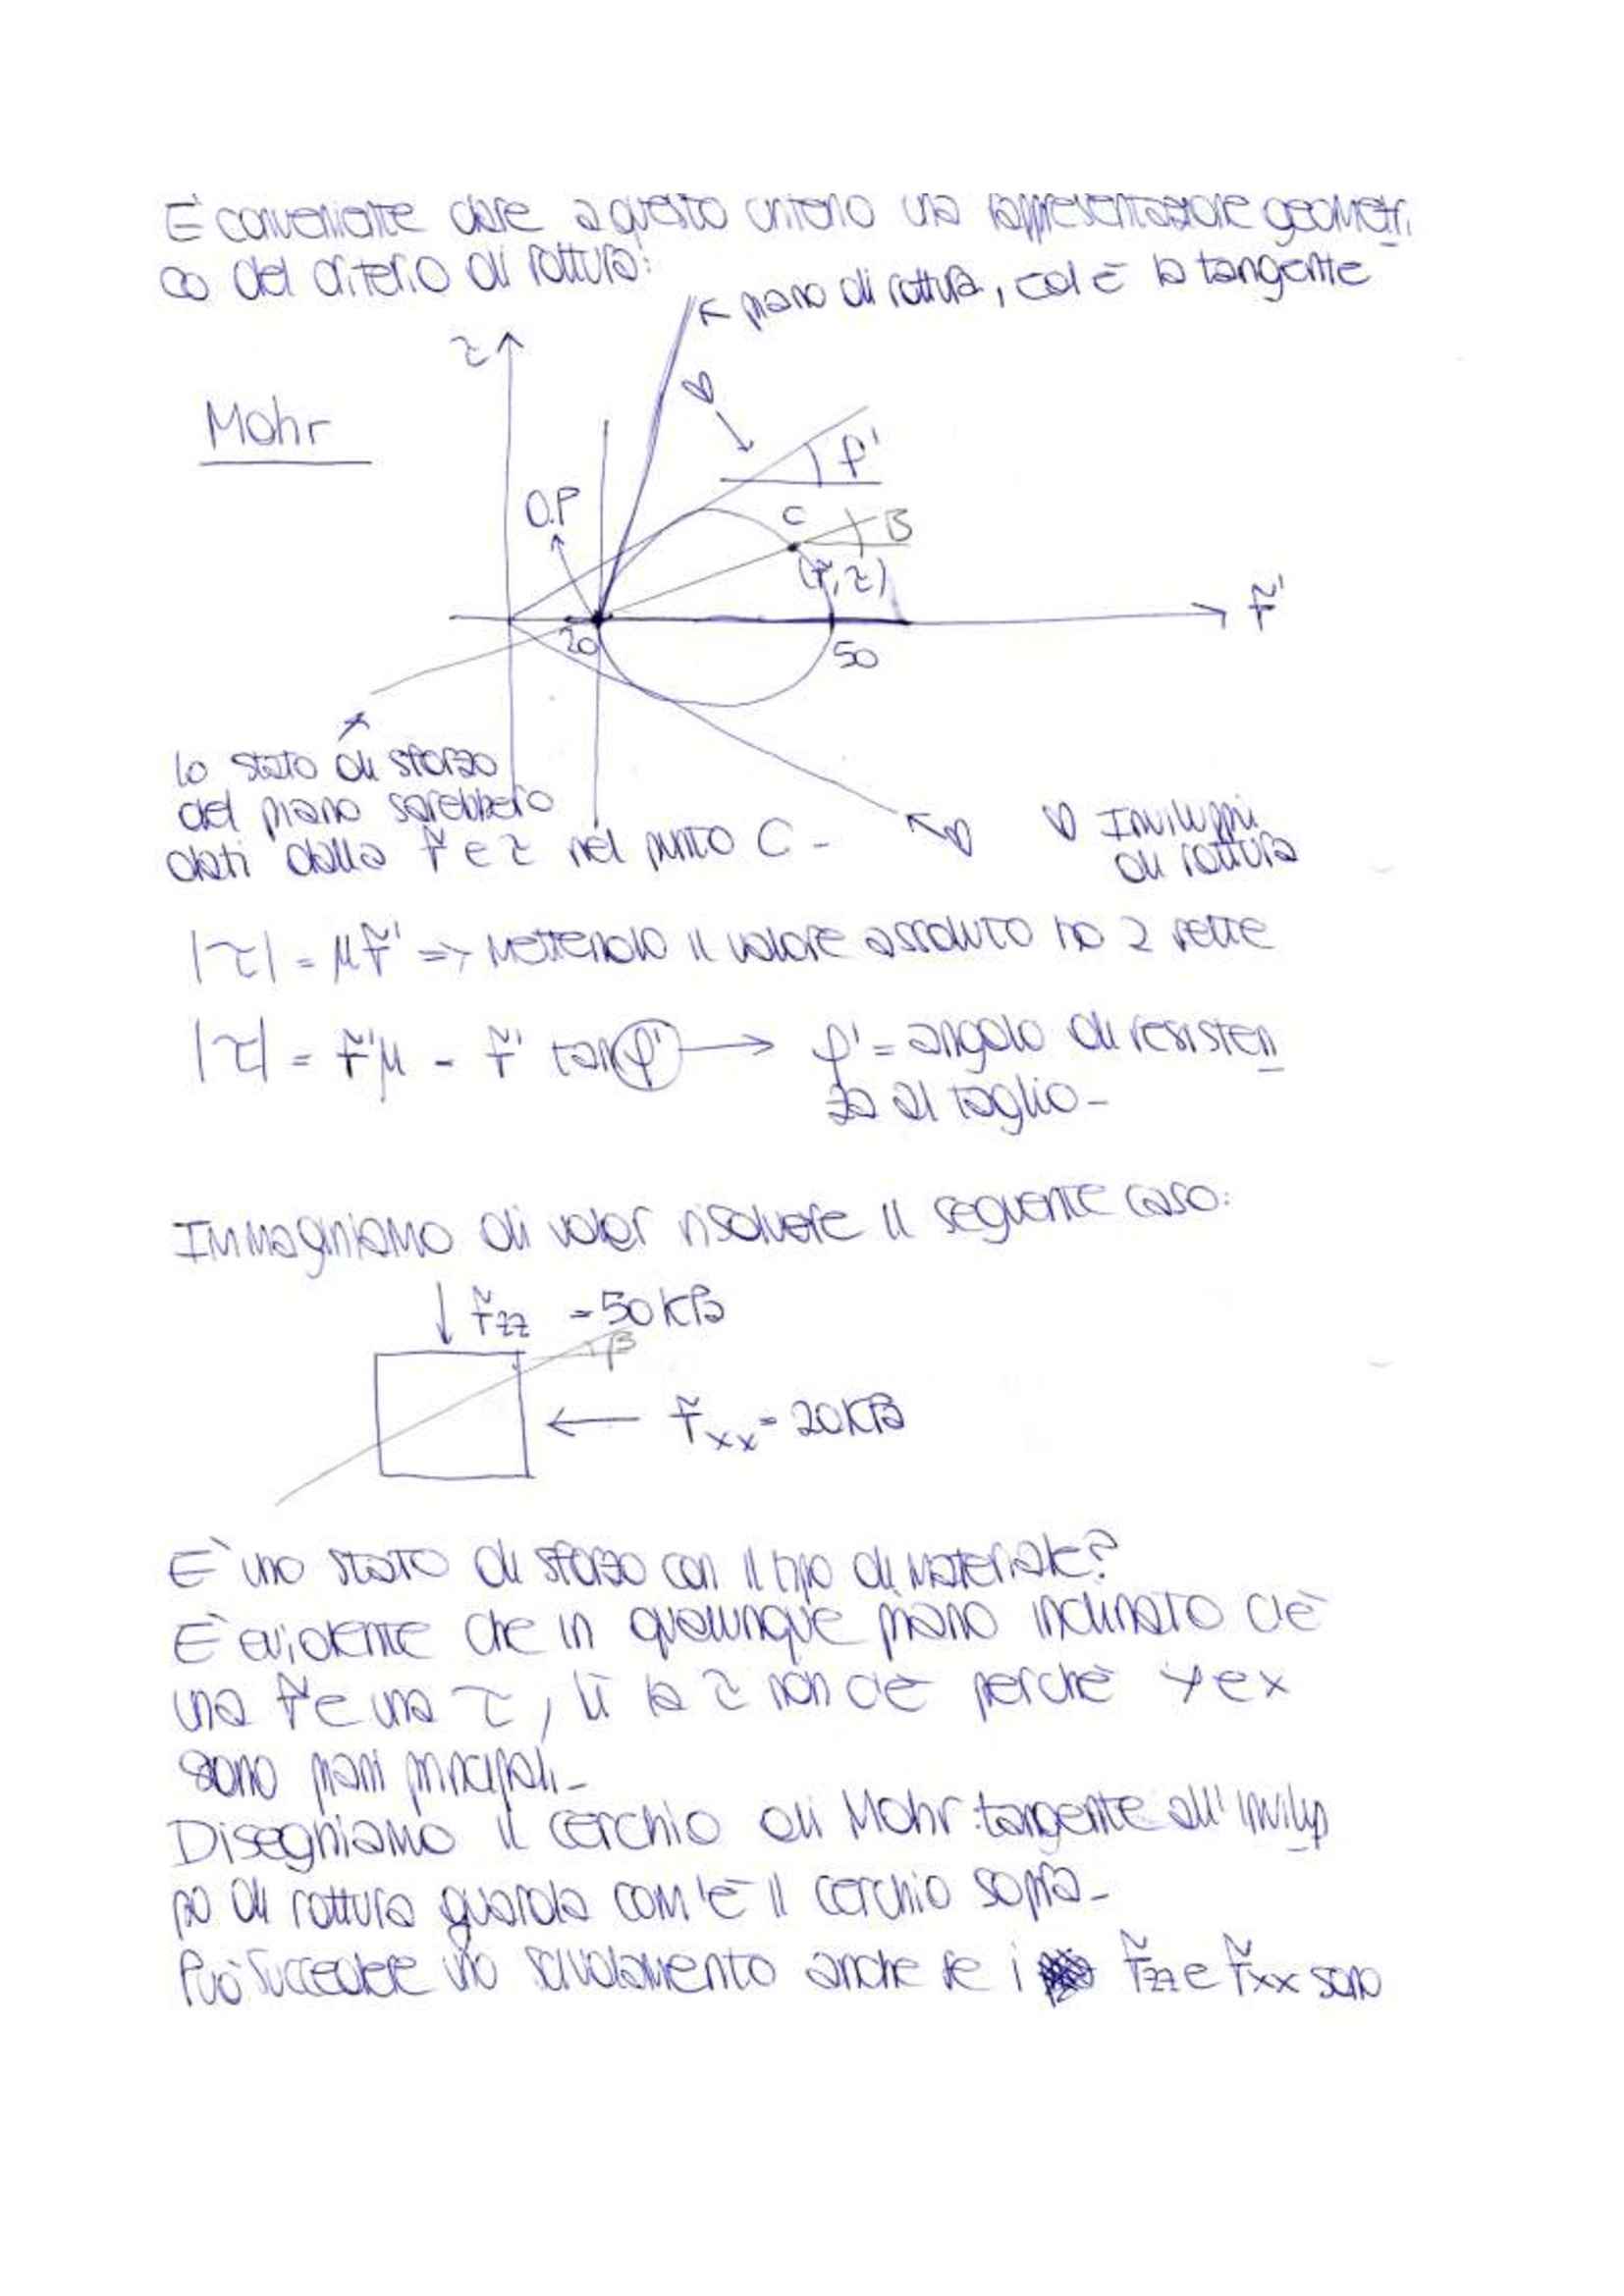 E' conveniente dare a questo criterio una rappresentazione geometri
co del criterio di rottura:
piano di rottura, cioè la tangente
τ
Mohr
φ'
O.P
C
B
(σ, τ)
σ'
20
50
lo stato di sforzo
del piano sarebbero
dati dalla σ e τ nel punto C -
Inviluppi
di rottura
|τ| = μσ' => Mettendo il valore assoluto ho 2 rette
|τ| = σ'μ - σ' tan φ' → φ' = angolo di resisten
za al taglio -
Immaginiamo di voler risolvere il seguente caso:
↓ σzz = 50 kPa
β
← σxx = 20 kPa
E' uno stato di sforzo con il tipo di materiale?
E' evidente che in qualunque piano inclinato c'è
una σ' e una τ, lì la τ non c'è perchè y e x
sono piani principali -
Disegniamo il cerchio di Mohr tangente all'invilup
po di rottura guarda com'è il cerchio sopra -
Può succedere uno scivolamento anche se i σzz e σxx sono